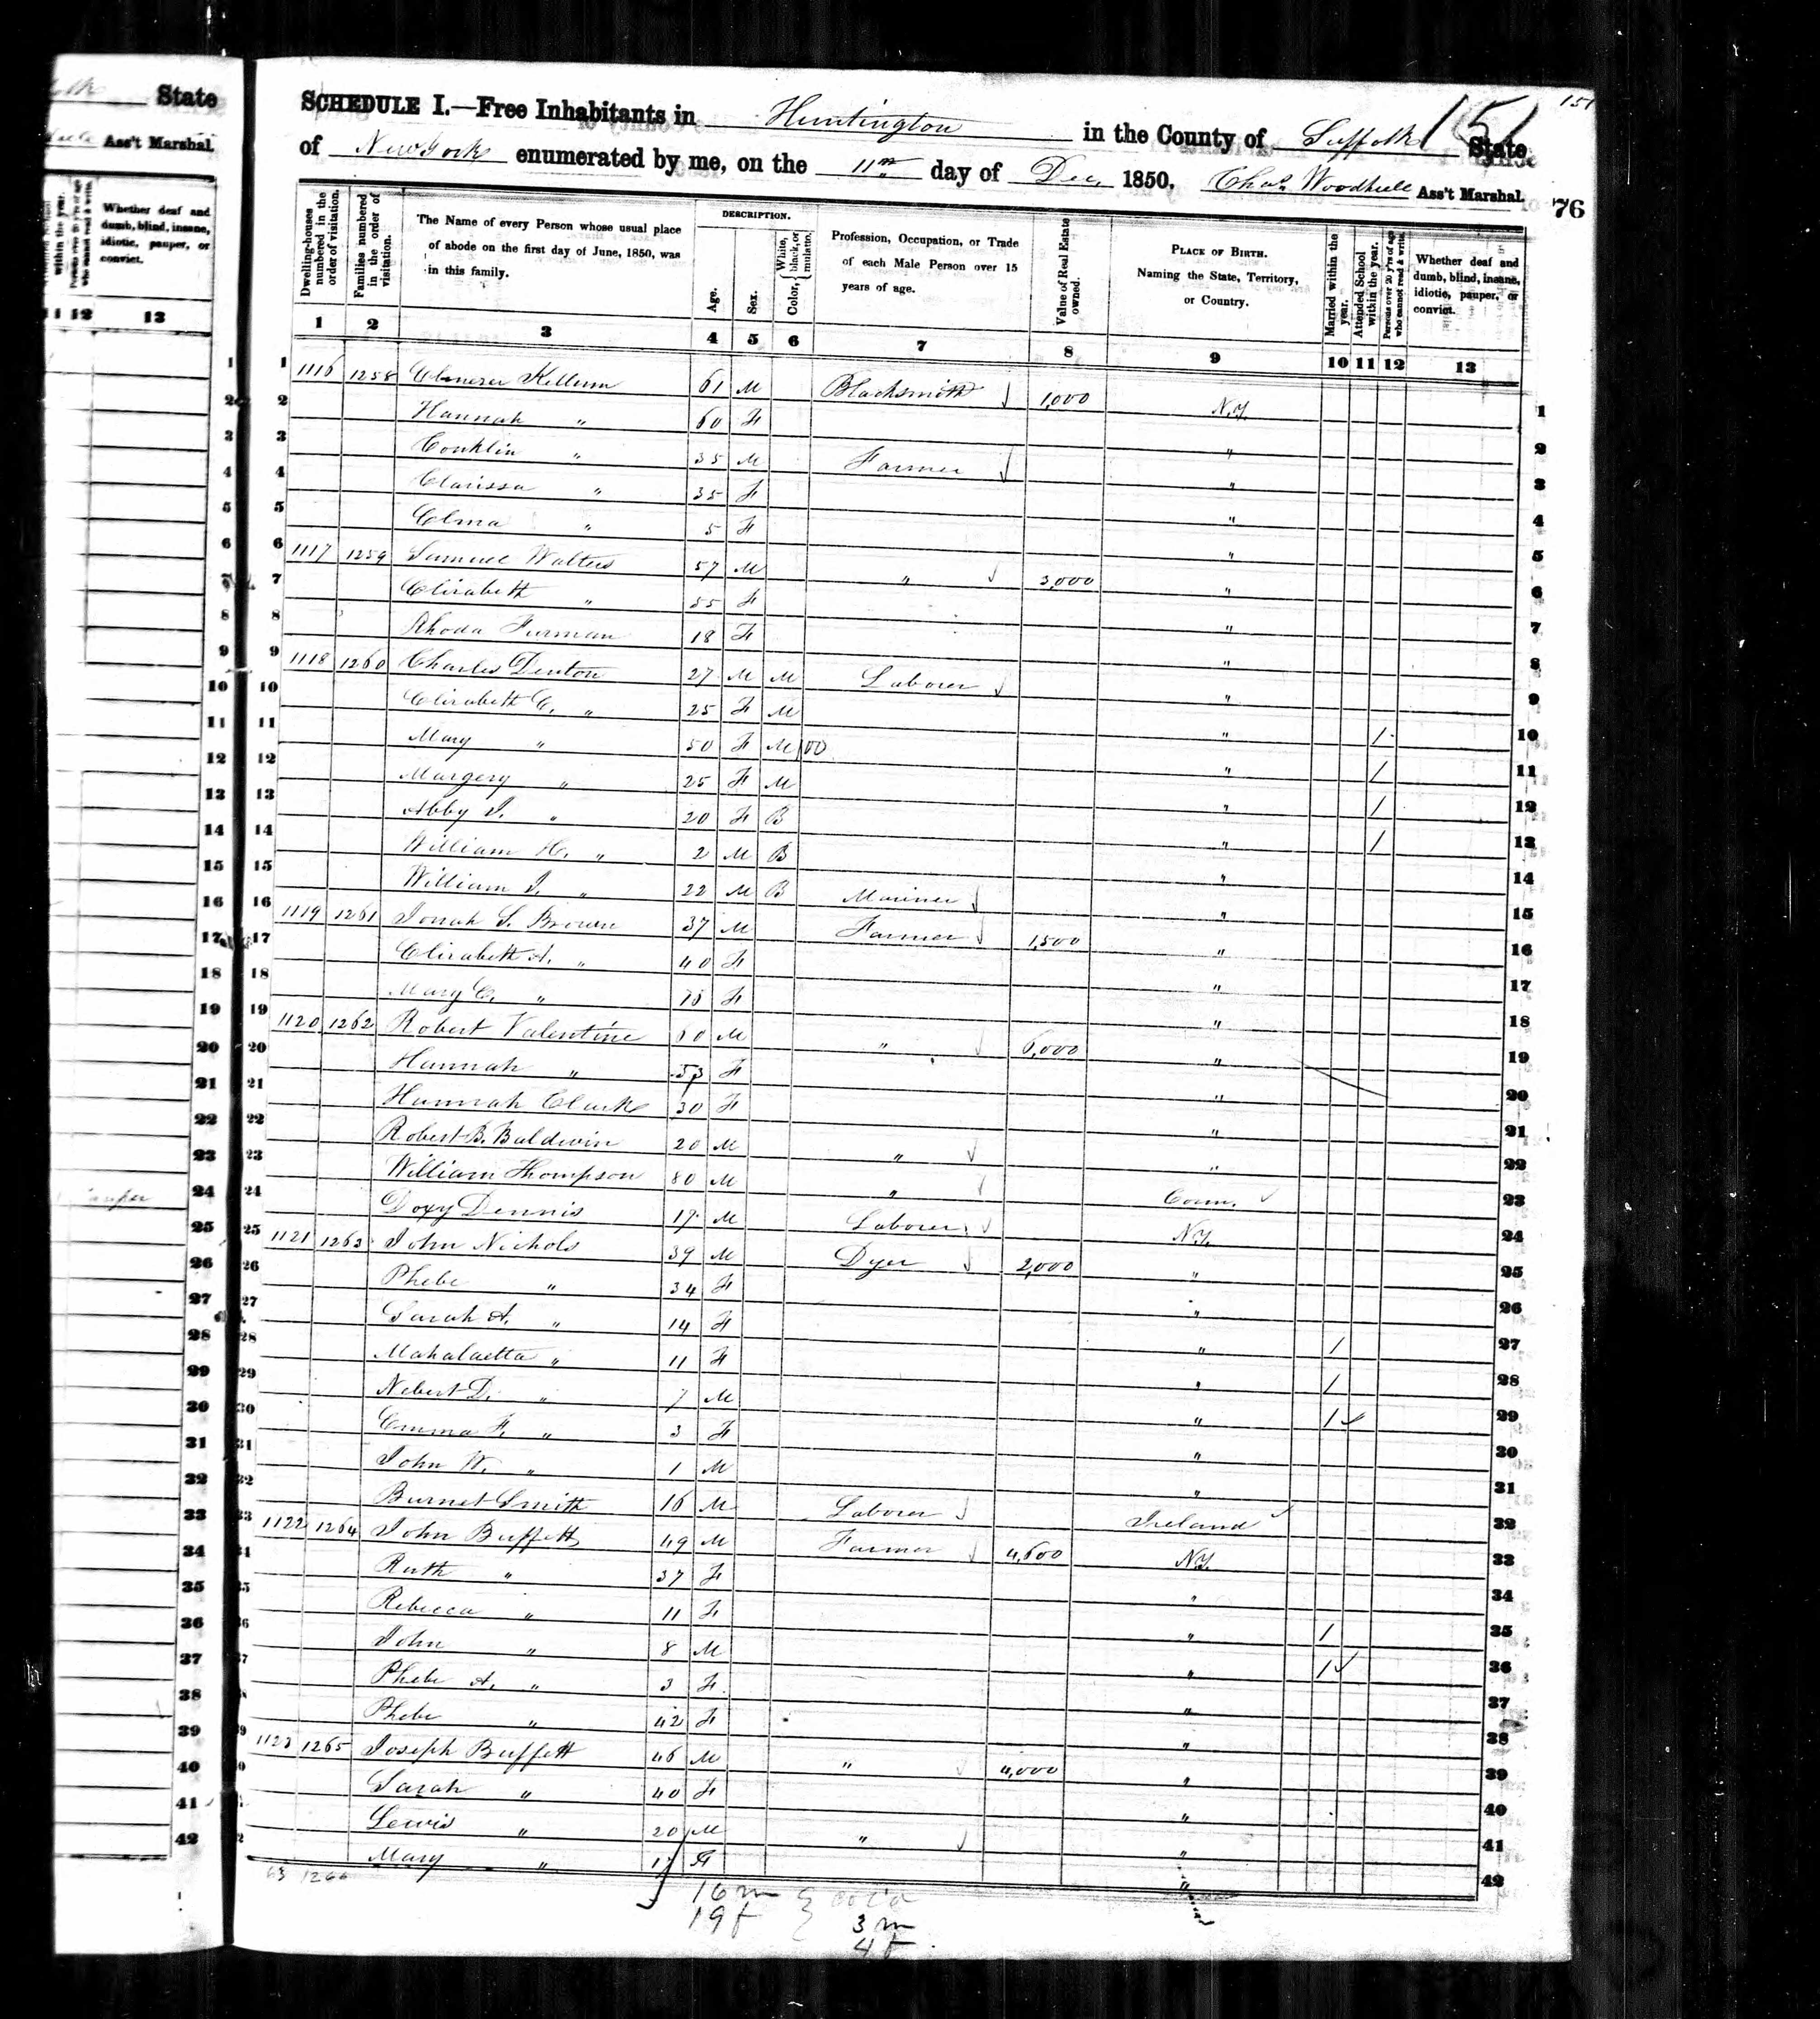 State
Ass't Marshal.
Whether deaf and dumb, blind, insane, idiotic, pauper, or convict.
11 12 13
151
151
SCHEDULE I.—Free Inhabitants in Huntington in the County of Suffolk State
of New York enumerated by me, on the 11th day of Dec. 1850. Chas Woodhull Ass't Marshal.
76
Dwelling-houses numbered in the order of visitation.
Families numbered in the order of visitation.
The Name of every Person whose usual place of abode on the first day of June, 1850, was in this family.
DESCRIPTION.
Age.
Sex.
Color, { White, black, or mulatto.
Profession, Occupation, or Trade of each Male Person over 15 years of age.
Value of Real Estate owned.
PLACE OF BIRTH. Naming the State, Territory, or Country.
Married within the year.
Attended School within the year.
Persons over 20 y'rs of age who cannot read & write.
Whether deaf and dumb, blind, insane, idiotic, pauper, or convict.
1 2 3 4 5 6 7 8 9 10 11 12 13
1 1116 1258 Ebenezer Kellum 61 M Blacksmith 1,000 N.Y. 1
2 Hannah " 60 F " 2
3 Conklin " 35 M Farmer " 3
4 Clarissa " 35 F " 4
5 Elma " 5 F " 5
6 1117 1259 Samuel Walters 57 M " 3,000 " 6
7 Elizabeth " 55 F " 7
8 Rhoda Furman 18 F " 8
9 1118 1260 Charles Denton 27 M M Laborer " 9
10 Elizabeth C. " 25 F M " 1 10
11 Mary " 50 F M 100 " 1 11
12 Margery " 25 F M " 1 12
13 Abby J. " 20 F B " 1 13
14 William H. " 2 M B " 14
15 William J. " 22 M B Mariner " 15
16 1119 1261 Jonah S. Brown 37 M Farmer 1,500 " 16
17 Elizabeth A. " 40 F " 17
18 Mary C. " F " 18
19 1120 1262 Robert Valentine 60 M " 6,000 " 19
20 Hannah " 53 F " 20
21 Hannah Clark 30 F " 21
22 Robert B. Baldwin 20 M " " 22
23 William Thompson 80 M " Conn. 23
24 Doxy Dennis 17 M Laborer N.Y. 24
25 1121 1263 John Nichols 39 M Dyer 2,000 " 25
26 Phebe " 34 F " 26
27 Sarah A. " 14 F " 1 27
28 Mahalaetta " 11 F " 1 28
29 Nebert D. " 7 M " 1 29
30 Emma F. " 3 F " 30
31 John W. " 1 M " 31
32 Burnet Smith 16 M Laborer Ireland 32
33 1122 1264 John Buffett 49 M Farmer 4,600 N.Y. 33
34 Ruth " 37 F " 34
35 Rebecca " 11 F " 1 35
36 John " 8 M " 1 36
37 Phebe A. " 3 F " 37
38 Phebe " 42 F " 38
39 1123 1265 Joseph Buffett 46 M " 4,000 " 39
40 Sarah " 40 F " 40
41 Lewis " 20 M " " 41
42 Mary " 17 F " 42
1266
16 m } col'd
19 f 3 m
4 f